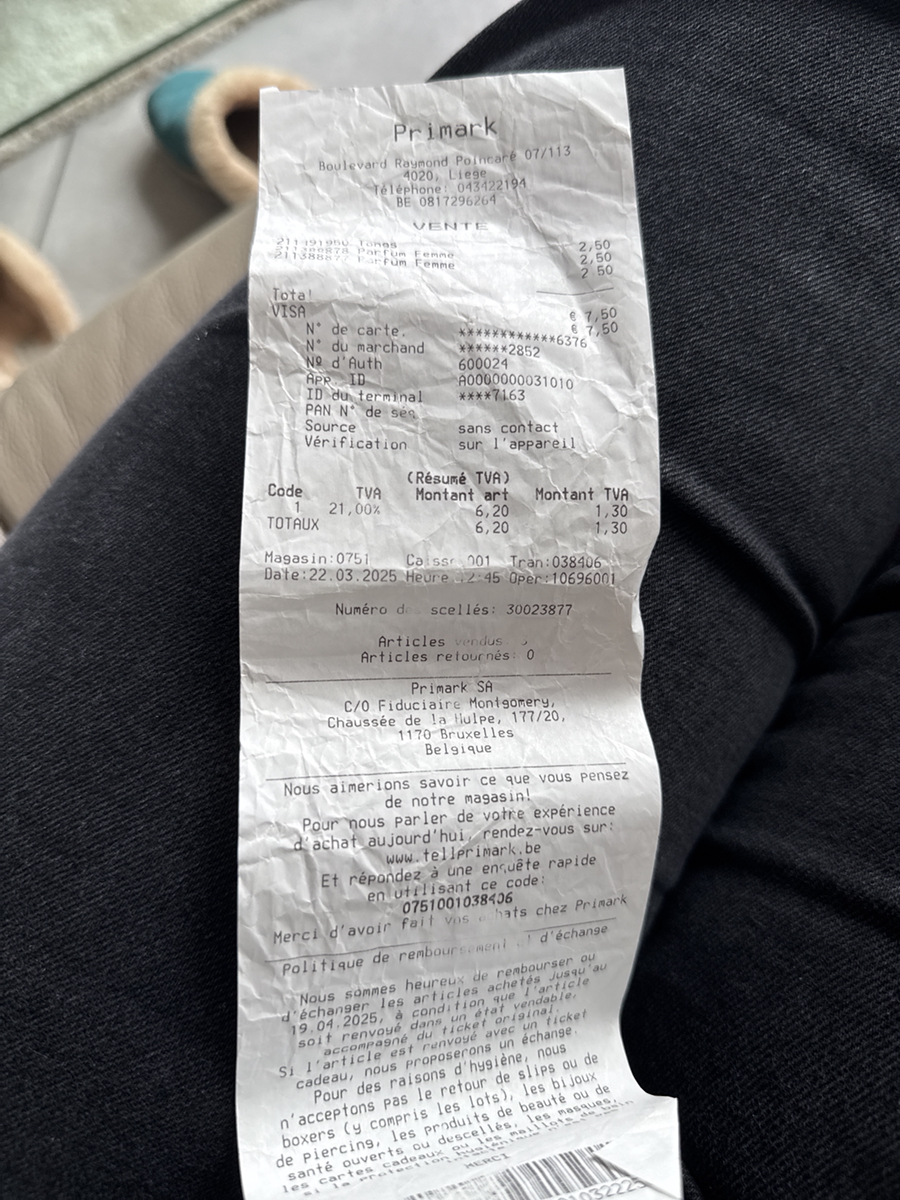 Primark
Boulevard Raymond Poincaré 07/113
4020, Liege
Téléphone: 043422194
BE 0817296264
VENTE
2,50
Parfum Femme 2,50
Parfum Femme 2 50
Total € 7,50
VISA € 7,50
N° de carte. ************6376
N° du marchand ******2852
Nº d'Auth 600024
App. ID A0000000031010
ID du terminal ****7163
PAN N° de séq
Source sans contact
Vérification sur l'appareil
(Résumé TVA)
Code TVA Montant art Montant TVA
1 21,00% 6,20 1,30
TOTAUX 6,20 1,30
Magasin:0751 Caisse 001 Tran:038406
Date:22.03.2025 Heure 12:45 Oper:10696001
Numéro scellés: 30023877
Articles vendus
Articles retournés: 0
Primark SA
C/O Fiduciaire Montgomery,
Chaussée de la Hulpe, 177/20,
1170 Bruxelles
Belgique
Nous aimerions savoir ce que vous pensez
de notre magasin!
Pour nous parler de votre expérience
d'achat aujourd'hui, rendez-vous sur:
www.tellprimark.be
Et répondez à une enquête rapide
en utilisant ce code:
0751001038406
Merci d'avoir fait vos achats chez Primark
Politique de remboursement et d'échange
Nous sommes heureux de rembourser ou
d'échanger les articles achetés jusqu'au
19.04.2025, à condition que l'article
soit renvoyé dans un état vendable,
accompagné du ticket original.
Si l'article est renvoyé avec un ticket
cadeau, nous proposerons un échange.
Pour des raisons d'hygiène, nous
n'acceptons pas le retour de slips ou de
boxers (y compris les lots), les bijoux
de piercing, les produits de beauté ou de
santé ouverts ou descellés, les masques,
les cartes cadeaux ou les maillots de bain
si la protection
MERCI